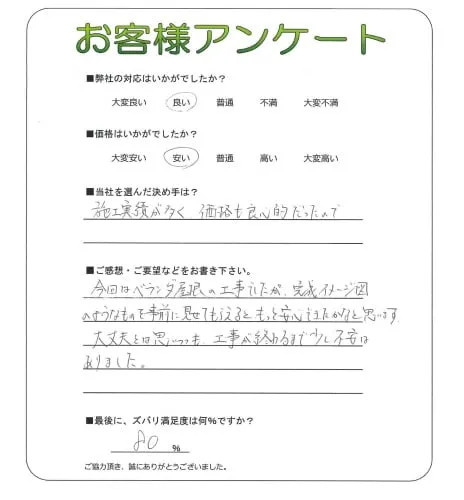 お客様アンケート
■弊社の対応はいかがでしたか？
大変良い 良い 普通 不満 大変不満
■価格はいかがでしたか？
大変安い 安い 普通 高い 大変高い
■当社を選んだ決め手は？
施工実績が多く、価格も良心的だったので
■ご感想・ご要望などをお書き下さい。
今回はベランダ屋根の工事でしたが、完成イメージ図
のようなものを事前に見せてもらえると もっと安心できたかなと思います。
大丈夫とは思いつつも、工事が終わるまで少し不安は
ありました。
■最後に、ズバリ満足度は何％ですか？
80 ％
ご協力頂き、誠にありがとうございました。